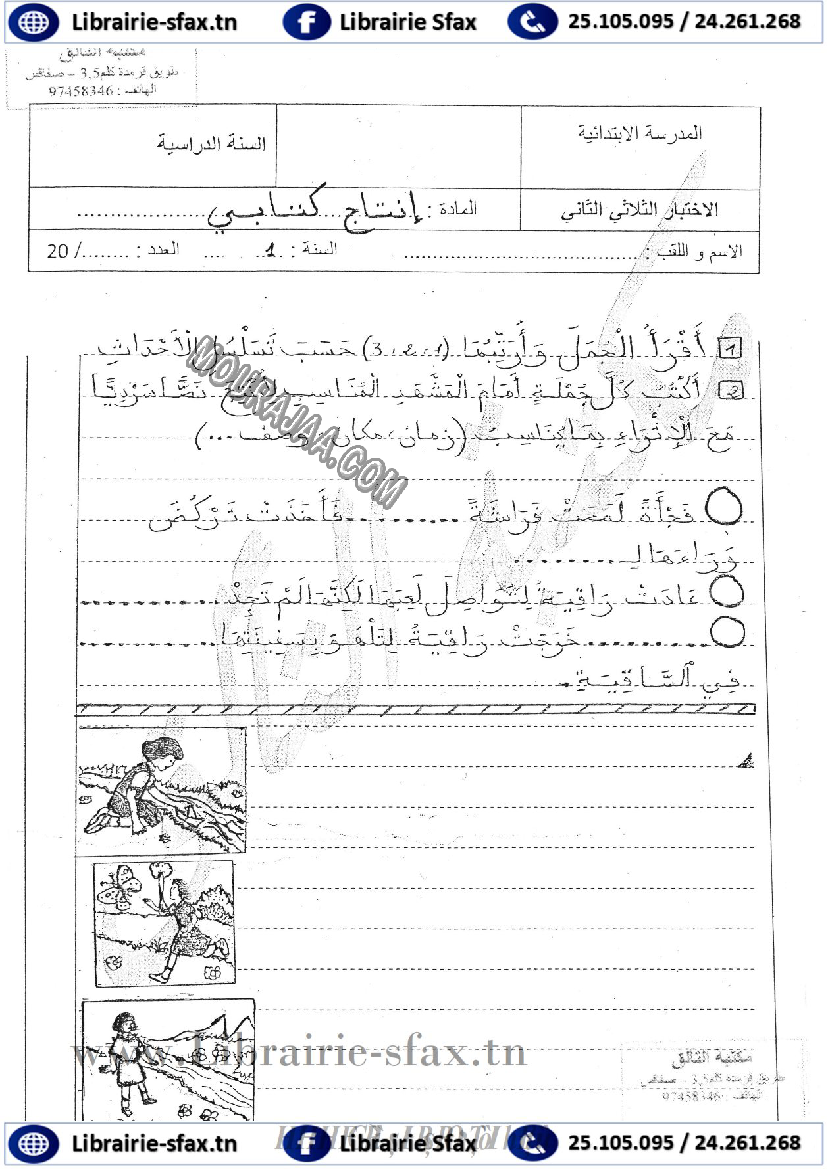 Librairie-sfax.tn Librairie Sfax 25.105.095 / 24.261.268
مكتبة التالق
طريق قرمدة كلم3,5 – صفاقس
الهاتف : 97458346
المدرسة الابتدائية
السنة الدراسية
الاختبار الثلاثي الثاني
المادة : إنتاج كتابي
الاسم و اللقب : ........................................
السنة : 1
العدد : ......../ 20
1 أَقْرَأُ الْجُمَلَ وَأُرَتِّبُهَا (1، 2، 3) حَسَبَ تَسَلْسُلِ الْأَحْدَاثِ
2 أَكْتُبُ كُلَّ جُمْلَةٍ أَمَامَ الْمَشْهَدِ الْمُنَاسِبِ لِأُنْتِجَ نَصًّا سَرْدِيًّا
مَعَ الْإِثْرَاءِ بِمَا يُنَاسِبُ (زمان، مكان، وصف ...)
فَجْأَةً لَمَحَتْ فَرَاشَةً .......... فَأَخَذَتْ تَرْكُضُ
وَرَاءَهَا لِـ ..........
عَادَتْ رَاقِيَةُ لِتُوَاصِلَ لَعِبَهَا لَكِنَّهَا لَمْ تَجِدْ ..............
.............. خَرَجَتْ رَاقِيَةُ لِتَلْهُوَ بِسَفِينَتِهَا
فِي السَّاقِيَةِ.
MOURAJAA.COM
www.librairie-sfax.tn
مكتبة التالق
طريق قرمدة كلم3,5 – صفاقس
الهاتف : 97458346
Librairie-sfax.tn Librairie Sfax 25.105.095 / 24.261.268